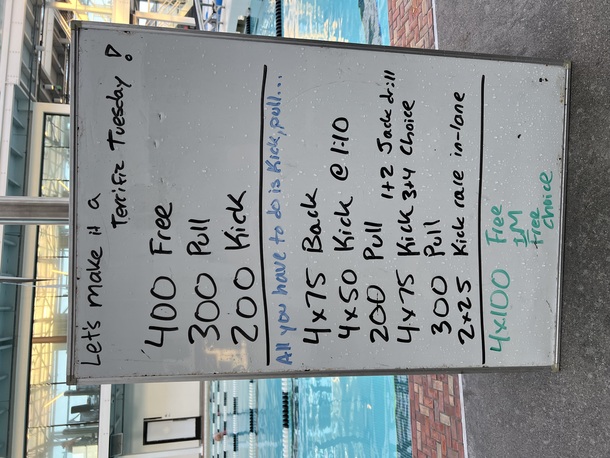 Let's make it a
Terrific Tuesday!
400 Free
300 Pull
200 Kick
All you have to do is Kick, pull...
4x75 Back
4x50 Kick @ 1:10
200 Pull
4x75 Kick 1+2 Jack drill 3+4 Choice
300 Pull
2x25 Kick race in-lane
4x100 Free
IM
free
choice